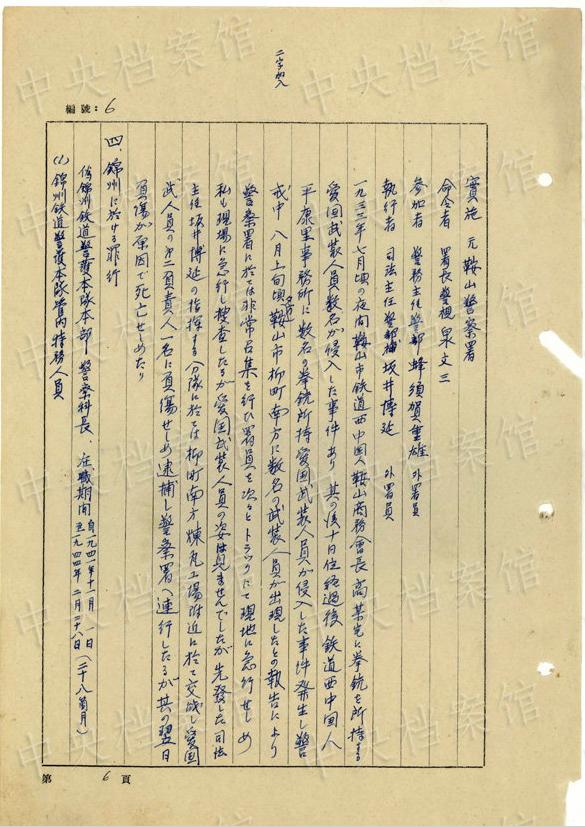 二字加入
編號:6
實施 元鞍山警察署
命令者 署長警視 泉文三
参加者 警務主任警部 蜂須賀重雄 外署員
執行者 司法主任警部補 坂井博延 外署員
一九三三年七月頃の夜間鞍山市鉄道西中国人鞍山商務會長高某宅に拳銃を所持する
愛国武装人員数名が侵入した事件あり 其の後十日位経過後鉄道西中国人
平康里事務所に数名の拳銃所持愛国武装人員が侵入した事件発生し警
戒中 八月上旬頃鞍山市柳町南方に数名の武装人員が出現したとの報告により
警察署に於ては非常召集を行ひ署員を次々とトラックにて現地に急行せしめ
私も現場に急行し捜査したるが愛国武装人員の姿は見ませんでしたが先発した司法
主任坂井博延の指揮する分隊に於ては柳町南方煉瓦工場附近に於て交戦し愛国
武人員の第二負責人一名に負傷せしめ逮捕し警察署へ連行したるが其の翌日
負傷が原因で死亡せしめたり
四、錦州に於ける罪行
偽錦州鉄道警護本隊本部 警察科長、在職期間 自一九四一年十一月一日 至一九四四年二月二十八日 (二十八箇月)
(1) 錦州鉄道警護本隊管内特務人員
第 6 頁
中央档案馆